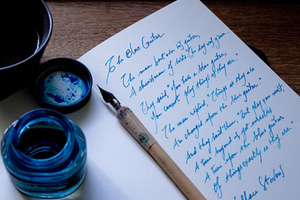 The Blue Guitar
The man bent over his guitar,
A shearsman of sorts. The day was green.
They said, "You have a blue guitar,
You do not play things as they are."
The man replied, "Things as they are
Are changed upon the blue guitar."
And they said then, "But play, you must,
A tune beyond us, yet ourselves,
A tune upon the blue guitar
Of things exactly as they are."
Wallace Stevens